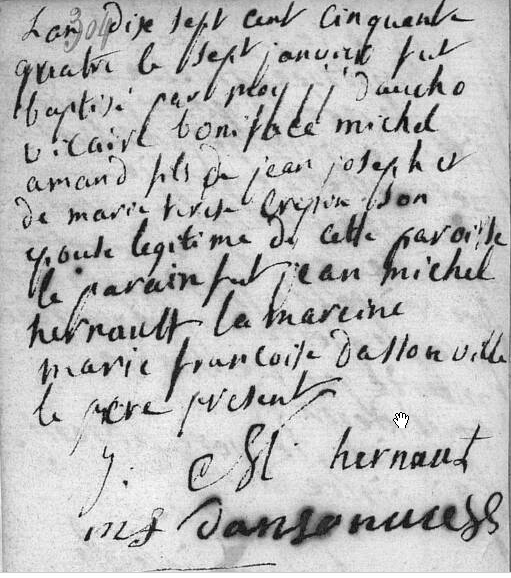 Lan dix sept cent cinquante
304
quatre le sept janvier fut
baptisé par moy j j daucho
vicaire boniface michel
amand fils de jean joseph et
de marie terese Crepin son
epouse legitime de cette paroisse
le parain fut jean michel
hernault la mareine
marie francoise dassonville
le pere present
J. M hernaut
mf